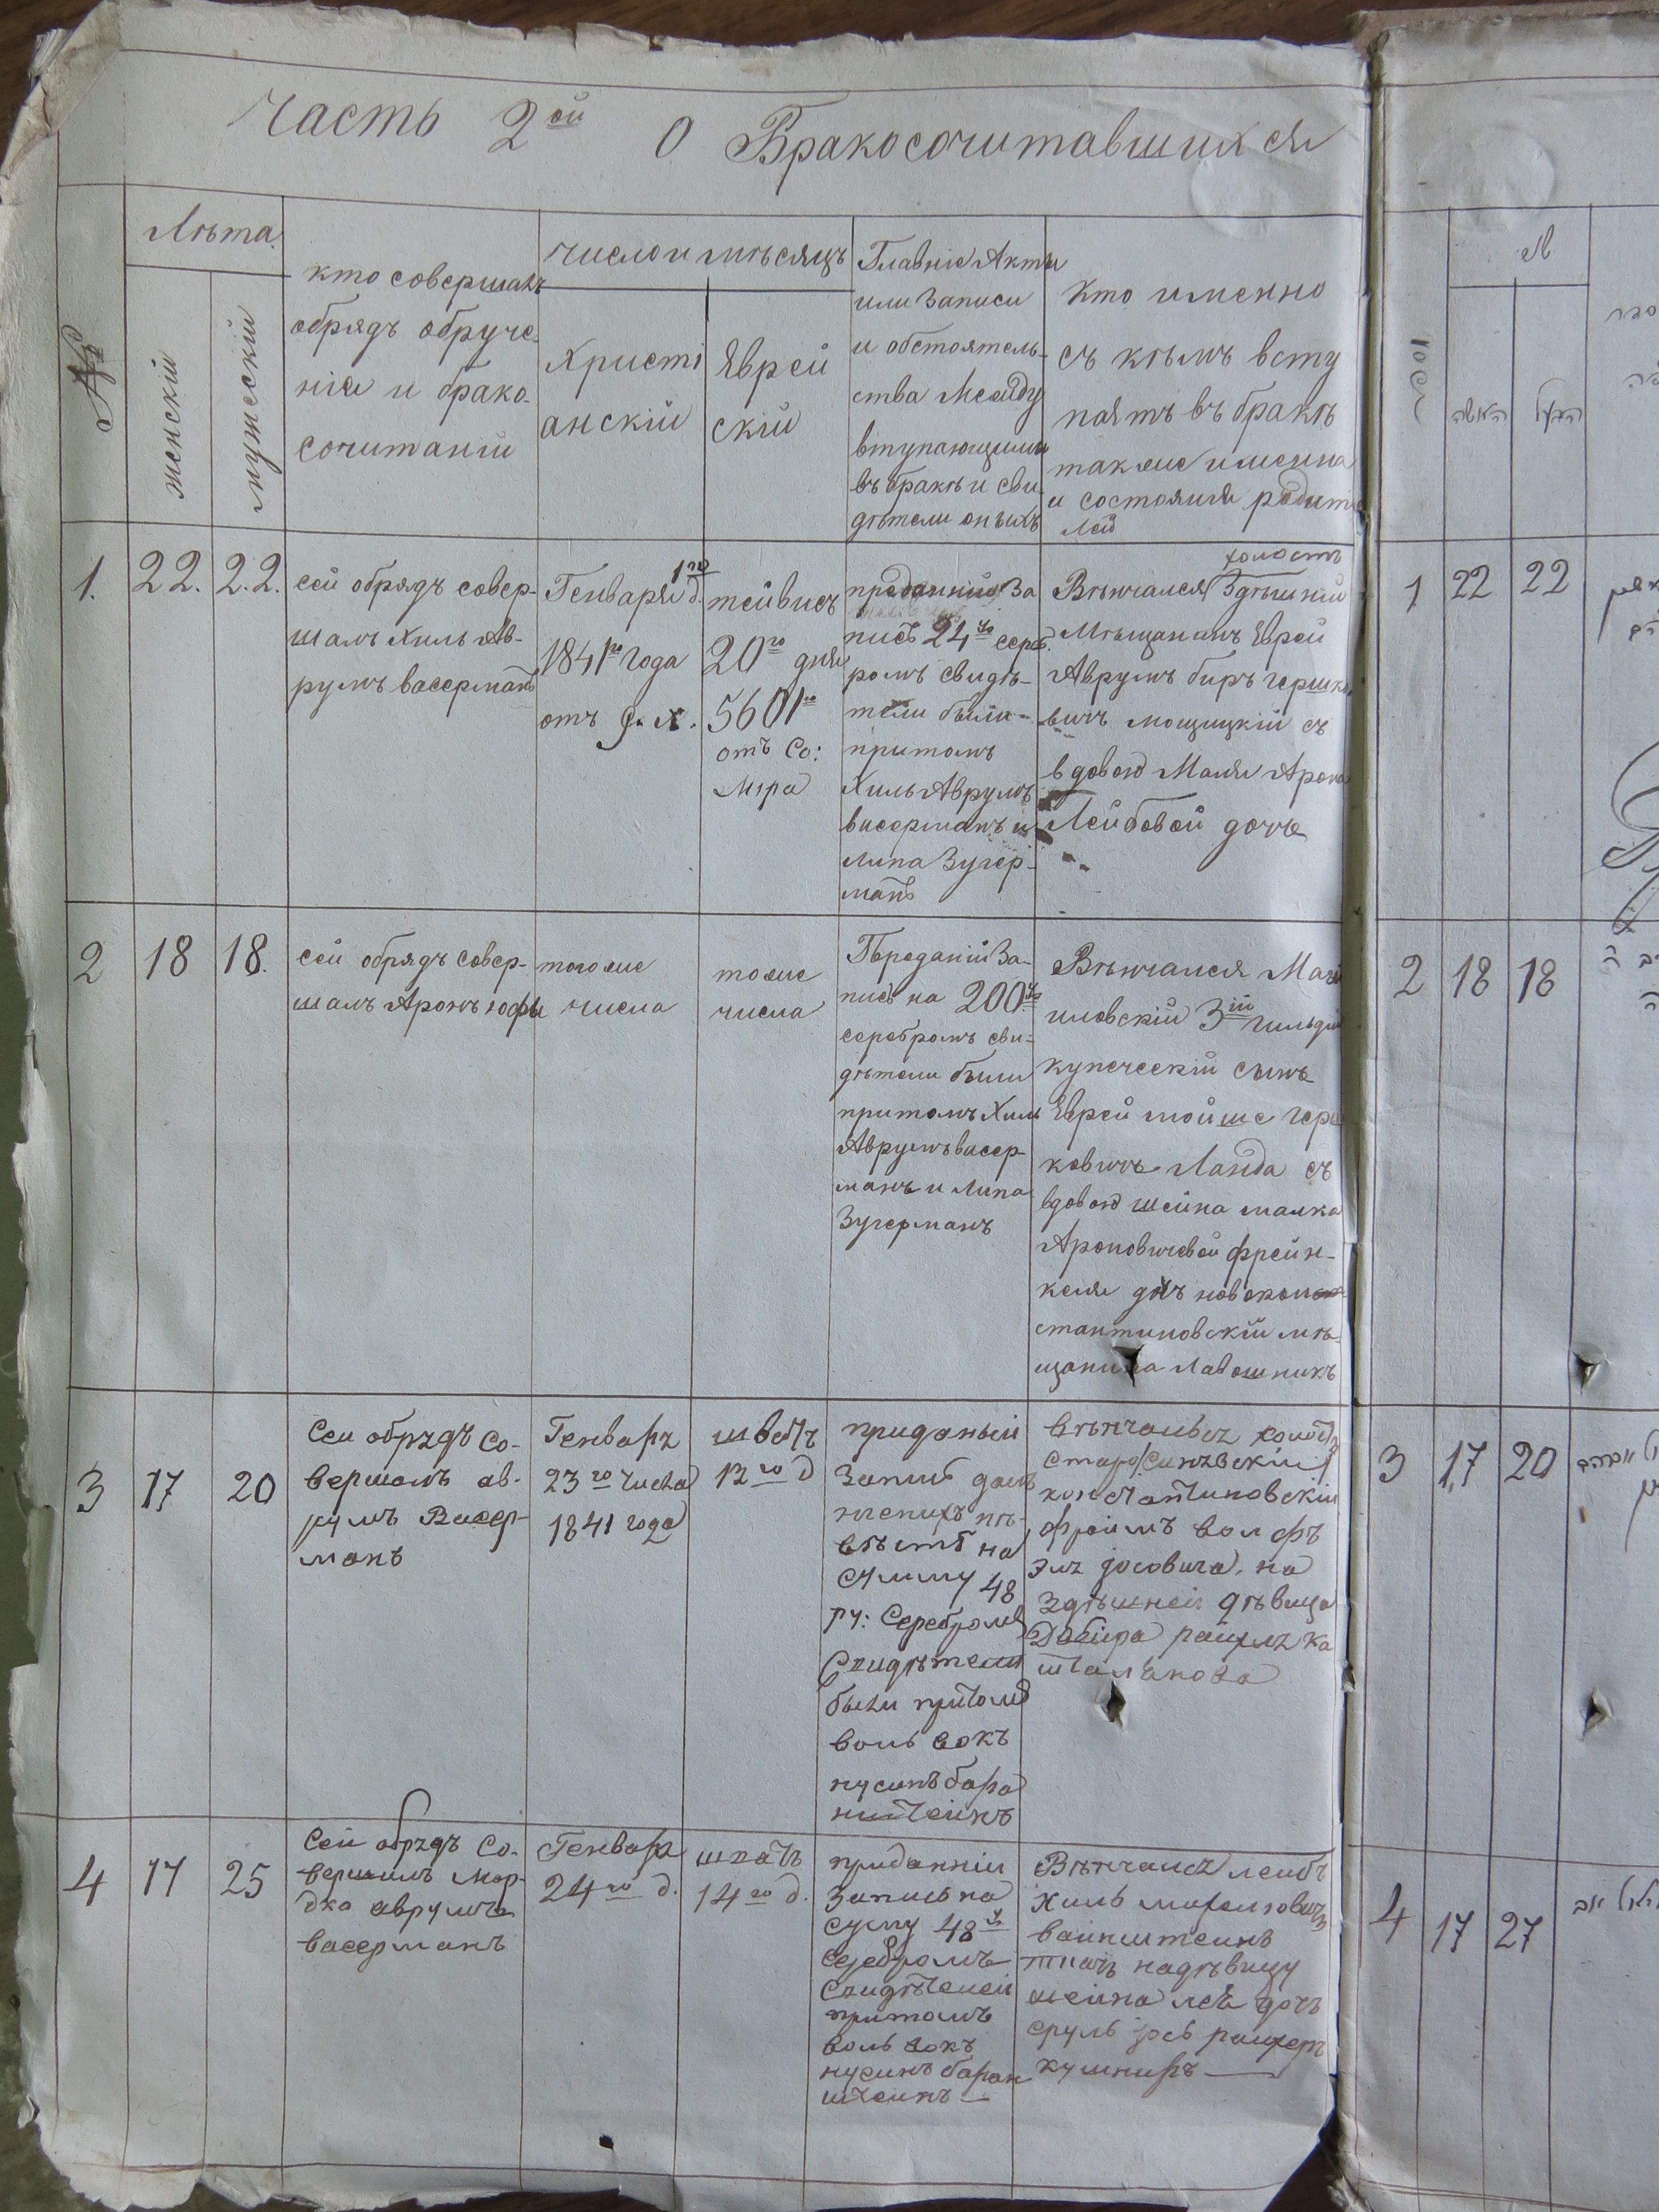 Часть 2ой О Бракосочитавшихся
№
Лѣта
женскій
мужескій
кто совершалъ
обрядъ обруче-
нія и брако-
сочитаній
число и мѣсяцъ
Христі
анскій
Яврей
скій
Главніе Акти
или Записи
и обстоятель-
ства Между
вступающими
въ бракъ и сви-
дѣтели онихъ
Кто именно
съ кѣмъ всту
паятъ въ бракъ
также именна
и состоянія родите
лей
1.
22.
22.
сей обрядъ совер-
шалъ Хиль Ав-
румъ васерманъ
Генваря 1го д.
1841го года
отъ Р. Х.
тейвисъ
20го дня
5601го
отъ Со:
Міра
преданній За
пись 24 сереб.
ромъ свидѣ-
тели были
притомъ
Хиль Аврумъ
васерманъ и
Липа Зугер-
манъ
холостъ
Вѣнчался Здѣшній
Мѣщанинъ Еврей
Аврумъ беръ гершко
вичъ мощицкій съ
вдовою Маля Арона
Лейбовой дочъ
2
18
18.
сей обрядъ совер-
шалъ Аронъ юфы
тогоже
числа
тоже
числа
Преданій За-
пись на 200
серебромъ сви-
дѣтели были
притомъ Хиль
Аврумъ васер-
манъ и Липа
Зугерманъ
Вѣнчался Маги
иловскій 3ій гильдіи
купеческій сынъ
Еврей мойше герш
ковичъ Ланда съ
вдовою шейна малка
Ароновичевой френ-
келя дчъ новокон
стантиновскій мѣ-
щанина Лавошникъ
3
17
20
Сеи обрядъ Со-
вершалъ ав-
румъ Васер-
манъ
Генваря
23го числа
1841 года
шватъ
12го д
приданыи
Запись далъ
женихъ не-
вѣстѣ на
Сумму 48
ру: Серебромъ
Свидѣтели
были притомъ
воль вокъ
нусинъ бара
нштеинъ
вѣнчался холостъ
Старо
константиновскіи
фроимъ волфъ
на
Здѣшней дѣвица
Двойра
4
17
25
Сеи обрядъ Со-
вершилъ мор-
дко аврумъ
васерманъ
Генваря
24го д.
шватъ
14го д.
приданніи
Запись на
суму 48
Серебромъ
Свидѣтелеи
притомъ
воль вокъ
нусинъ баран
штеинъ
Вѣнчался леибъ
Хиль михелювичъ
ваинштеинъ
на дѣвицу
шейна леа дочъ
сруль
кушниръ
1
22
22
2
18
18
3
17
20
4
17
27